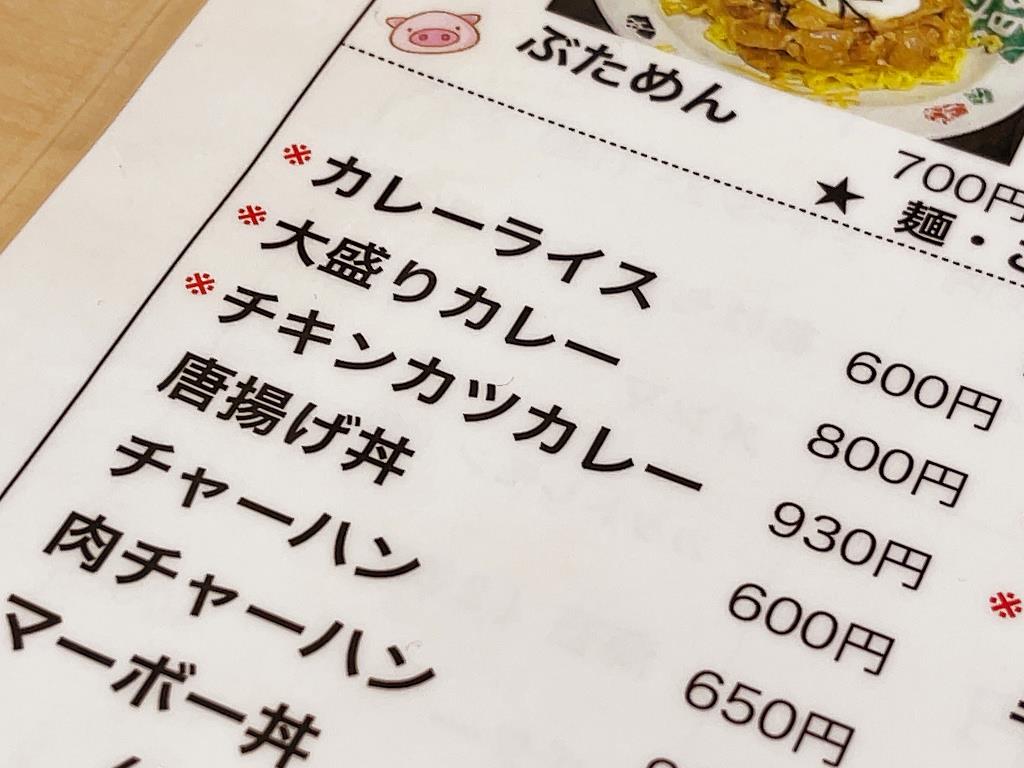 ぶためん 700円
★ 麺・
※カレーライス 600円
※大盛りカレー 800円
※チキンカツカレー 930円
唐揚げ丼 600円
チャーハン 650円
肉チャーハン
マーボー丼
※